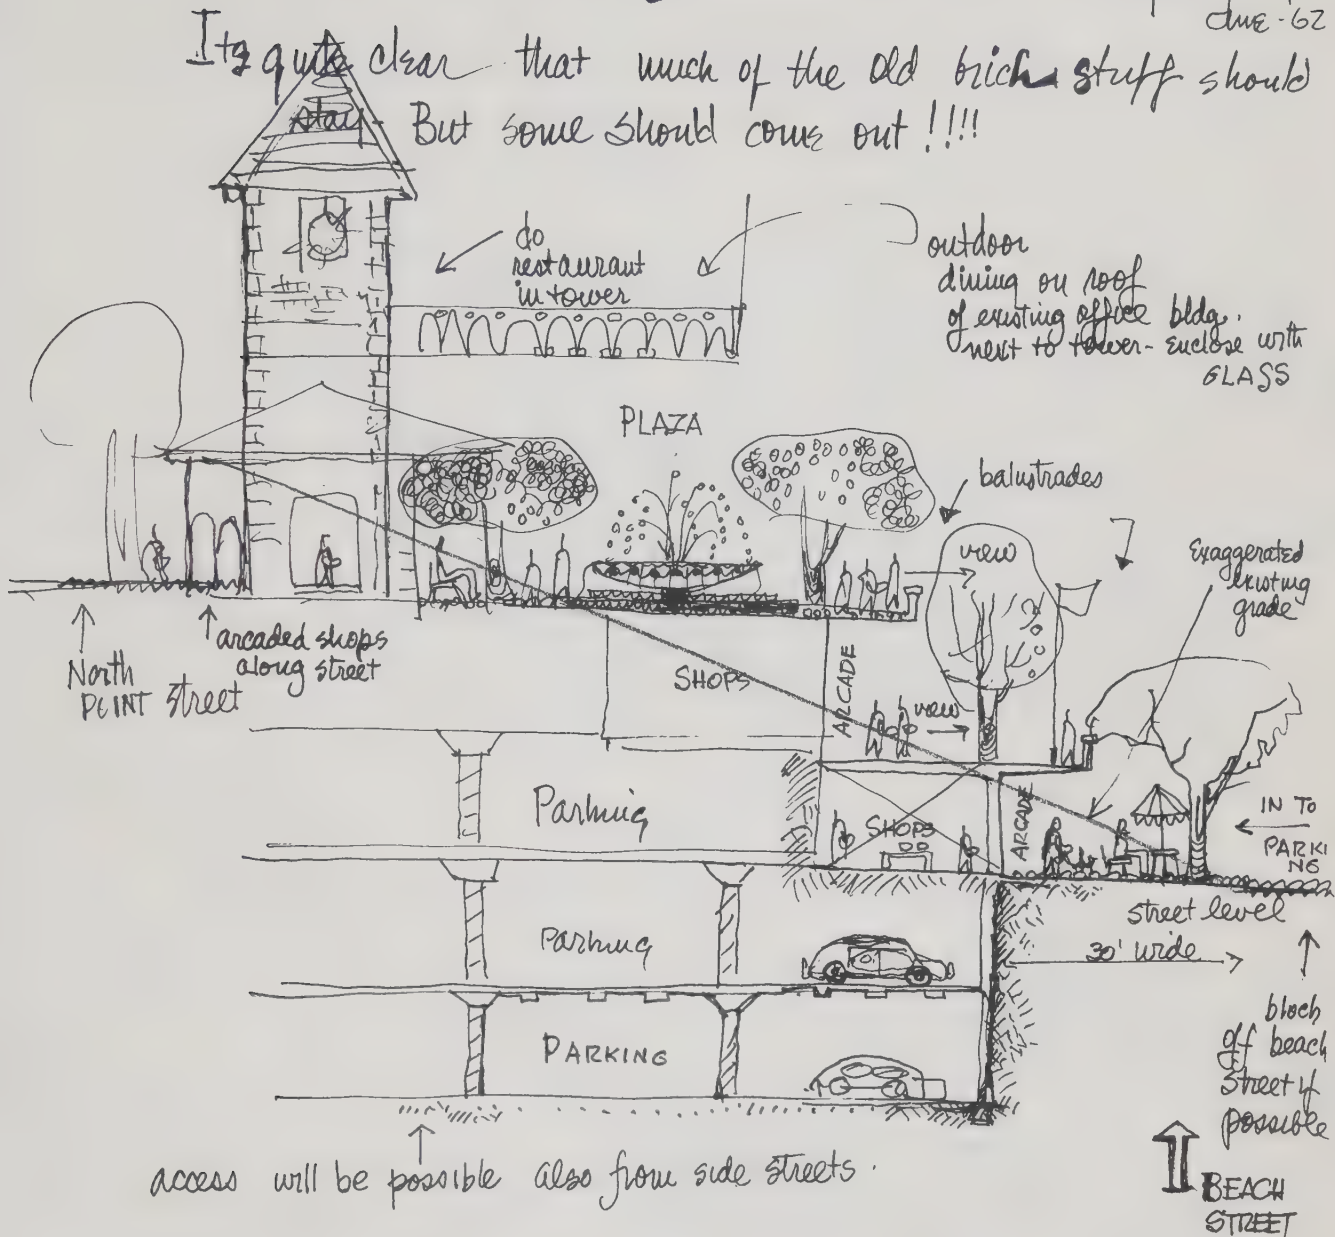 '62
Its quite clear that much of the old brick stuff should
stay. But some should come out !!!!
do
restaurant
in tower
outdoor
dining on roof
of existing office bldg.
next to tower - enclose with
GLASS
PLAZA
balustrades
view
Exaggerated
existing
grade
North
POINT street
arcaded shops
along street
SHOPS
ARCADE
view
Parking
SHOPS
ARCADE
IN TO
PARKI
NG
street level
30' wide
Parking
PARKING
block
off beach
street if
possible
access will be possible also from side streets.
BEACH
STREET